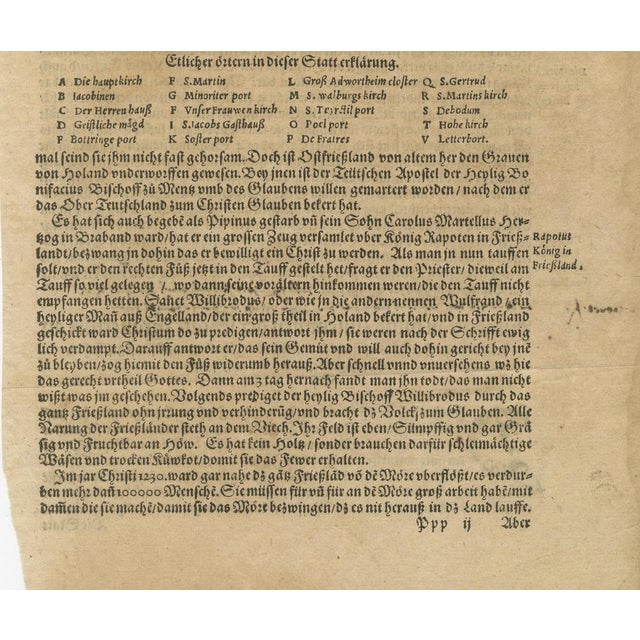 Etlicher örtern in dieser Statt erklärung.
A Die hauptkirch F S.Martin L Groß Adwortheim closter Q S.Gertrud
B Iacobinen G Minoriter port M S. walburgs kirch R S.Martins kirch
C Der Herren hauß F Vnser Frauwen kirch N S.Teyrstil port S Debodum
D Geistliche mägd I S.Iacobs Gasthauß O Poel port T Hohe kirch
F Bottringe port K Soster port P De Fratres V Letterbort.
mal seind sie jhm nicht fast gehorsam. Doch ist Ostfrießland von altem her den Grauen
von Holand vnderworffen gewesen. Bey jnen ist der Teütschen Apostel der Heylig Bo
nifacius Bischoff zů Mentz vmb des Glaubens willen gemartert worden/ nach dem er
das Ober Teutschland zum Christen Glauben bekert hat.
Es hat sich auch begebē als Pipinus gestarb vñ sein Sohn Carolus Martellus Her-
tzog in Braband ward/hat er ein grossen Zeug versamlet vber König Rapoten in Frieß-
landt/bezwang jn dohin das er bewilligt ein Christ zů werden. Als man jn nun tauffen
solt/vnd er den rechten Fůß jetzt in den Tauff gestelt het/fragt er den Priester/dieweil am
Tauff so viel gelegen/ wo dann seine vorältern hinkommen weren/die den Tauff nicht
empfangen hetten. Sanct Willibrodus/ oder wie jn die andern nennen Wulfrand/ ein
heyliger Mañ auß Engelland/der ein groß theil in Holand bekert hat/vnd in Frießland
geschickt ward Christum do zů predigen/antwort jhm/ sie weren nach der Schrifft ewig
lich verdampt. Darauff antwort er/das sein Gemüt vnd will auch dohin gericht bey jnē
zů bleyben/zog hiemit den Fůß widerumb herauß. Aber schnell vnnd vnuersehens wz hie
das gerecht vrtheil Gottes. Dann am 3 tag hernach fandt man jhn todt/das man nicht
wißt was jm geschehen. Volgends prediget der heylig Bischoff Willibrodus durch das
gantz Frießland ohn jrrung vnd verhinderũg/vnd bracht dz Volck zum Glauben. Alle
Narung der Frießländer steth an dem Viech. Ihr Feld ist eben/Sümpffig vnd gar Grä-
sig vnd Fruchtbar an Höw. Es hat kein Holtz/ sonder brauchen darfür schleimächtige
Wäsen vnd trocken Kůwkot/domit sie das Fewer erhalten.
Im jar Christi 1230. ward gar nahe dz gātz Frießlād vō dē Möre vberflößt/es verdur-
ben mehr dañ 100000 Menschē. Sie müssen für vñ für an dē Möre groß arbeit habē/mit
dam̃en die sie machē/damit sie das Möre bezwingen/dz es nit herauß in dz Land lauffe.
Ppp ij Aber
Rapotus
König in
Frießland.